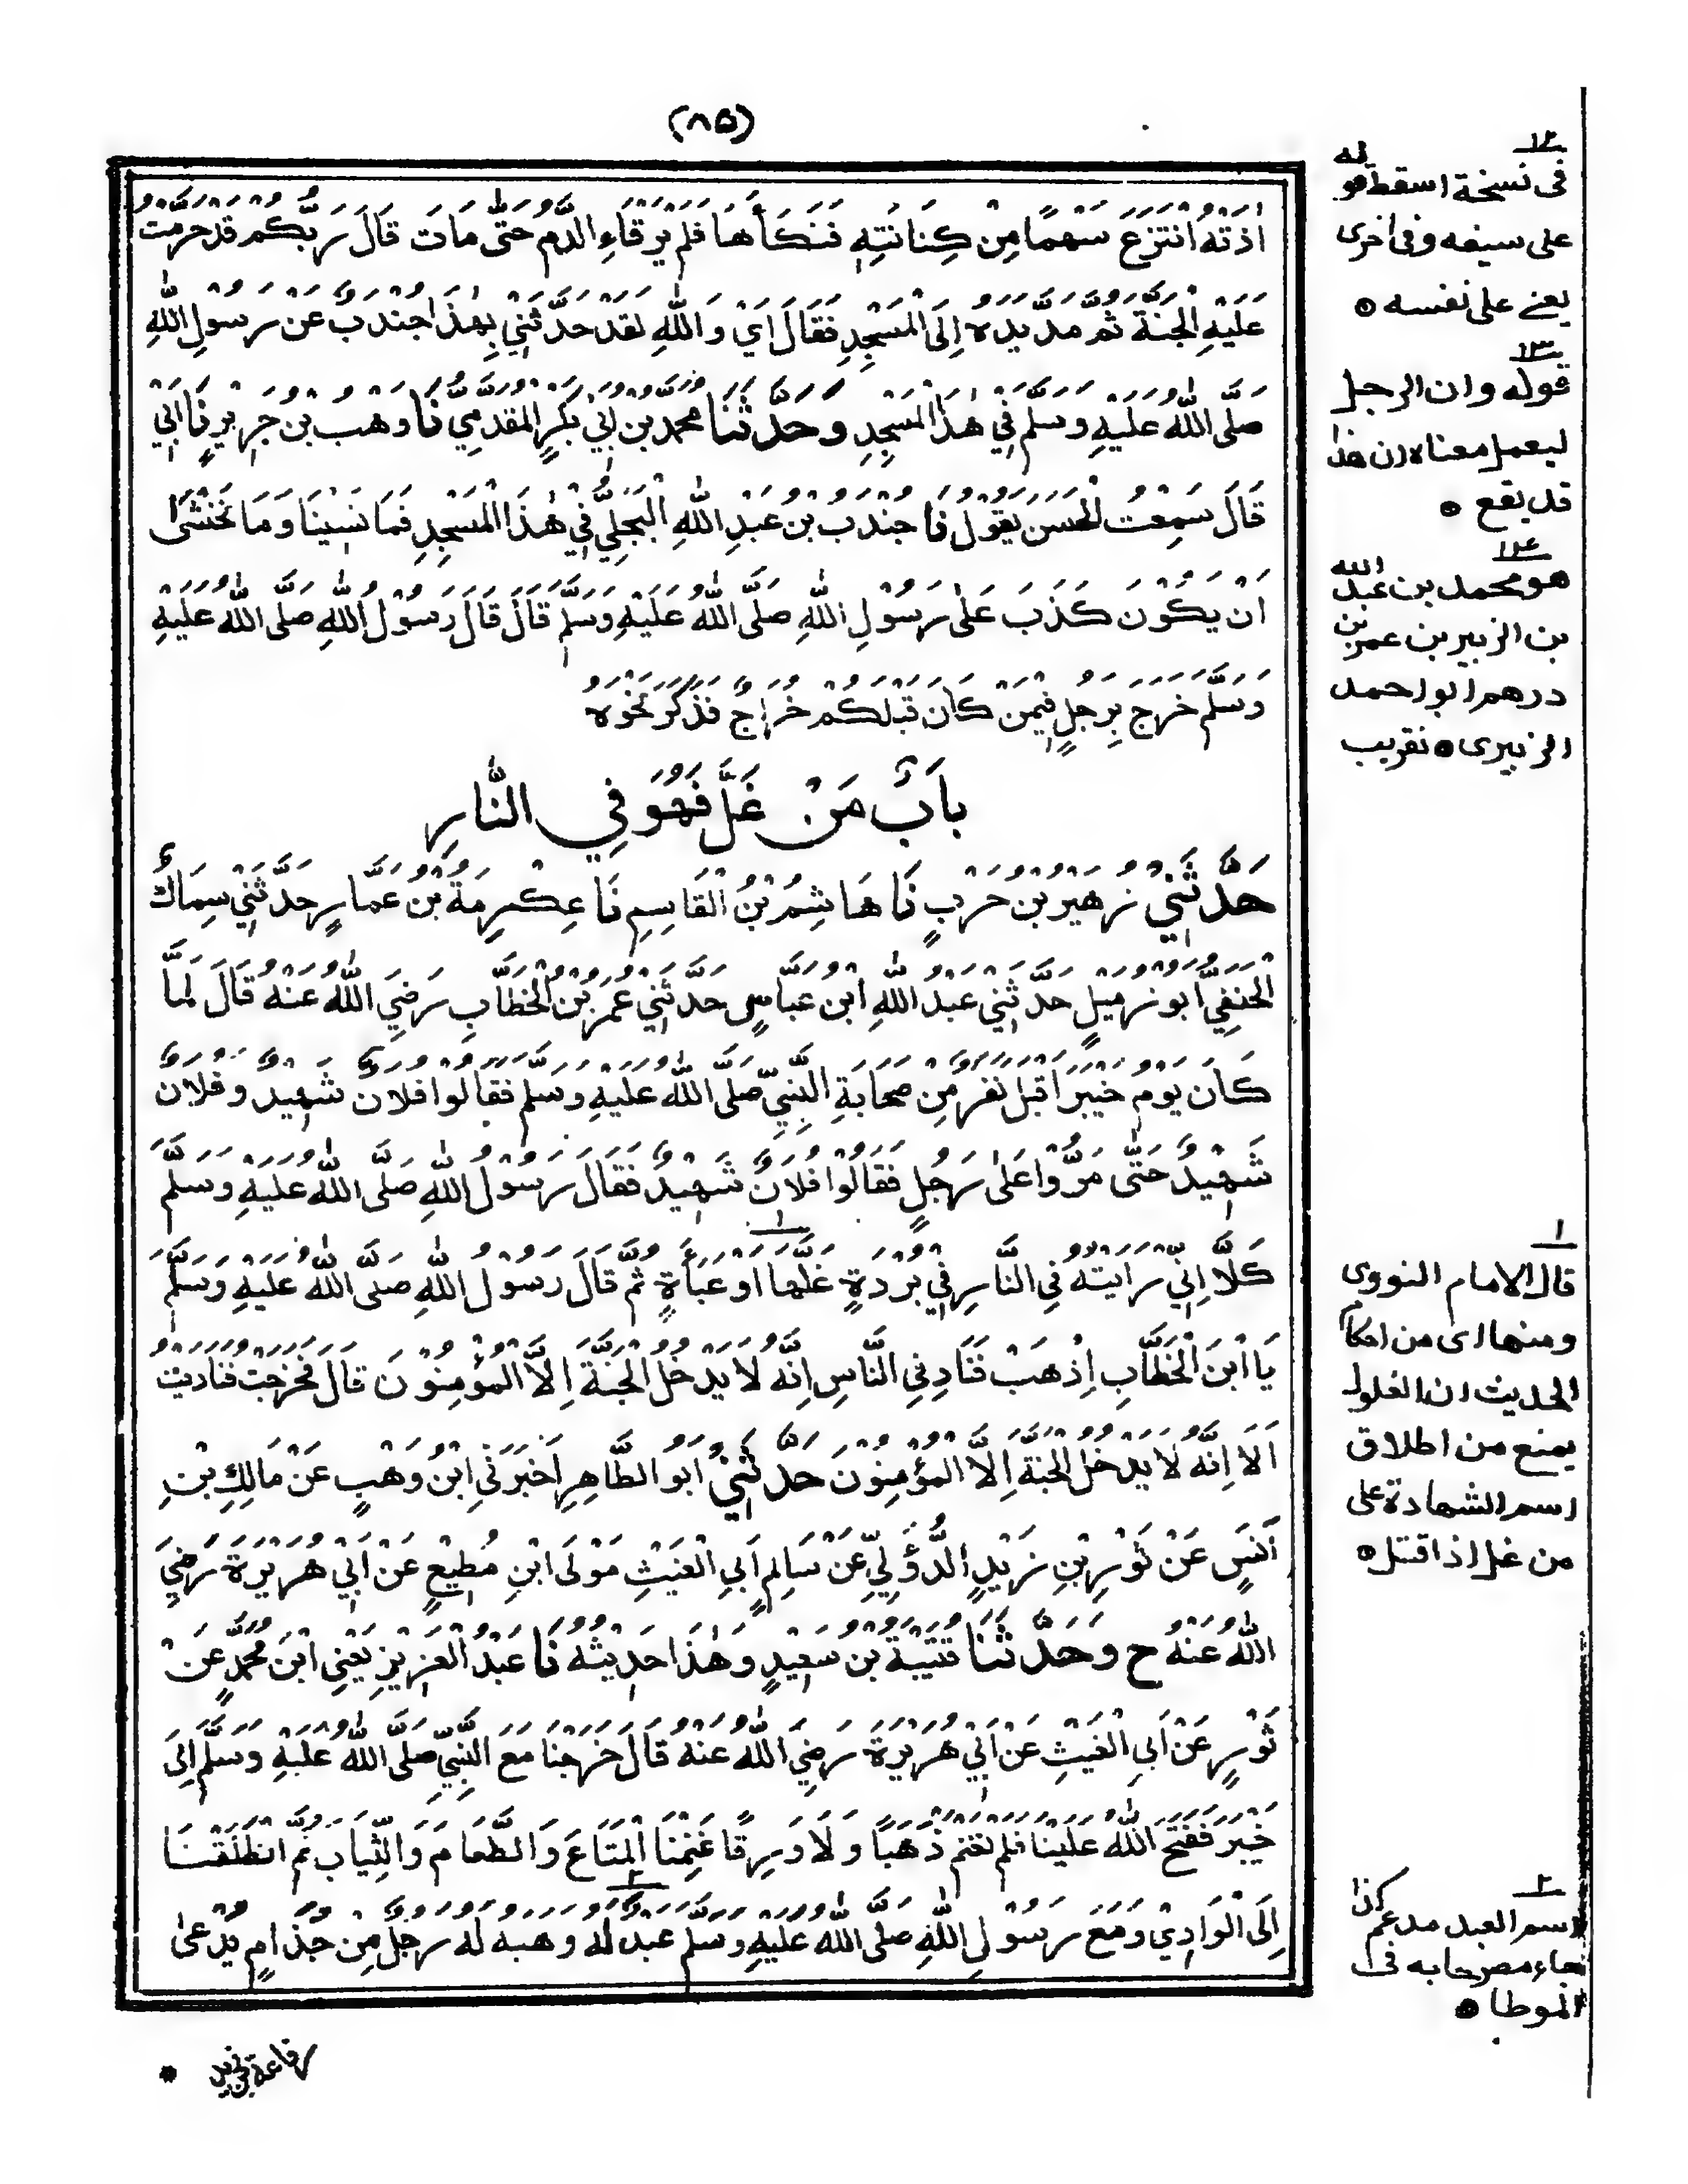 (٨٥)
اذته انتزع سهما من كنانته فنكأها فلم يرقاء الدم حتى مات قال ربكم قد حرمت
عليه الجنة ثم مد يده إلى المسجد فقال اي والله لقد حدثني بهذا جندب عن رسول الله
صلى الله عليه وسلم في هذا المسجد وحدثنا محمد بن ابي بكر المقدمي نا وهب بن جرير نا ابي
قال سمعت الحسن يقول نا جندب بن عبد الله البجلي في هذا المسجد فما نسينا وما نخشى
ان يكون كذب على رسول الله صلى الله عليه وسلم قال قال رسول الله صلى الله عليه
وسلم خرج برجل فيمن كان قبلكم خراج فذكر نحوه
باب من غل فهو في النار
حدثني زهير بن حرب نا هاشم بن القاسم نا عكرمة بن عمار حدثني سماك
الحنفي ابو زميل حدثني عبد الله ابن عباس حدثني عمر بن الخطاب رضي الله عنه قال لما
كان يوم خيبر اقبل نفر من صحابة النبي صلى الله عليه وسلم فقالوا فلان شهيد وفلان
شهيد حتى مروا على رجل فقالوا فلان شهيد فقال رسول الله صلى الله عليه وسلم
كلا اني رايته في النار في بردة غلها او عباءة ثم قال رسول الله صلى الله عليه وسلم
يا ابن الخطاب اذهب فناد في الناس انه لا يدخل الجنة الا المؤمنون قال فخرجت فناديت
الا انه لا يدخل الجنة الا المؤمنون حدثني ابو الطاهر اخبرني ابن وهب عن مالك بن
انس عن ثور بن زيد الدؤلي عن سالم ابي الغيث مولى ابن مطيع عن ابي هريرة رضي
الله عنه ح وحدثنا قتيبة بن سعيد وهذا حديثه نا عبد العزيز يعني ابن محمد عن
ثور عن ابي الغيث عن ابي هريرة رضي الله عنه قال خرجنا مع النبي صلى الله عليه وسلم الى
خيبر ففتح الله علينا فلم نغنم ذهبا ولا ورقا غنمنا المتاع والطعام والثياب ثم انطلقنا
٢
الى الوادي ومع رسول الله صلى الله عليه وسلم عبد له وهبه له رجل من جذام يدعى
رفاعة بن زيد *
١٢
في نسخة اسقط قوله
على سيفه وفي اخرى
يعني على نفسه
١٣
قوله وان الرجل
ليعمل معناه ان هذا
قد يقع
١٤
هو محمد بن عبد الله
بن الزبير بن عمر بن
درهم ابو احمد
الزبيري تقريب
١
قال الامام النووي
ومنها اي من احكام
الحديث ان الغلول
يمنع من اطلاق
اسم الشهادة على
من غل اذا قتل
٢
اسم العبد مدعم كذا
جاء مصرحا به في
الموطا